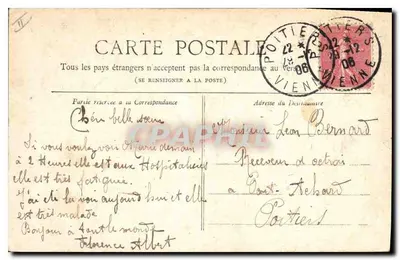 II
CARTE POSTALE
Tous les pays étrangers n'acceptent pas la correspondance au
(SE RENSEIGNER A LA POSTE)
Partie réservée à la Correspondance
Adresse du Destinataire
Cher belle sœur
Si vous voulez voir Marie demain
à 2 Heures elle est aux Hospitalières
elle est très fatiguée
J'ai été la voir aujourd'hui et elle
est très malade
Bonjour à tout le monde
Florence Albert
Monsieur Léon Bernard
Receveur d'octroi
a Pont-Achard
Poitiers
POITIERS
22 *
28 -12
06
VIENNE
POITIERS
22 *
-12
06
VIENNE
CPArama